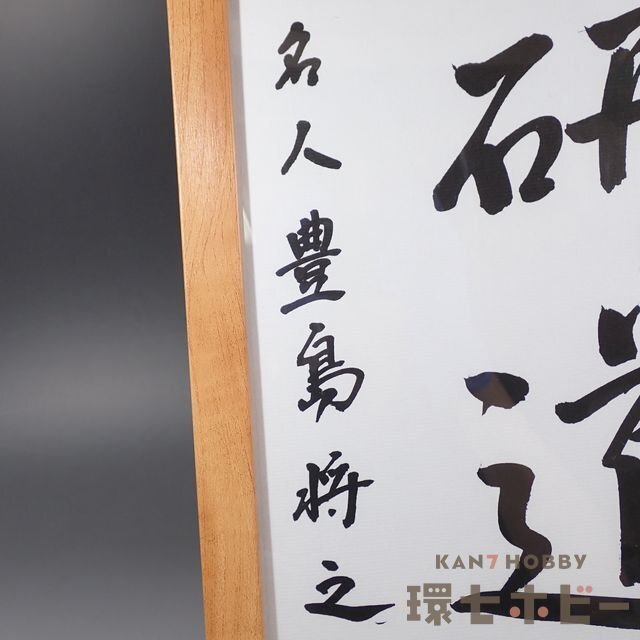 研道
名人 豊島将之
KAN7 HOBBY
環七ホビー